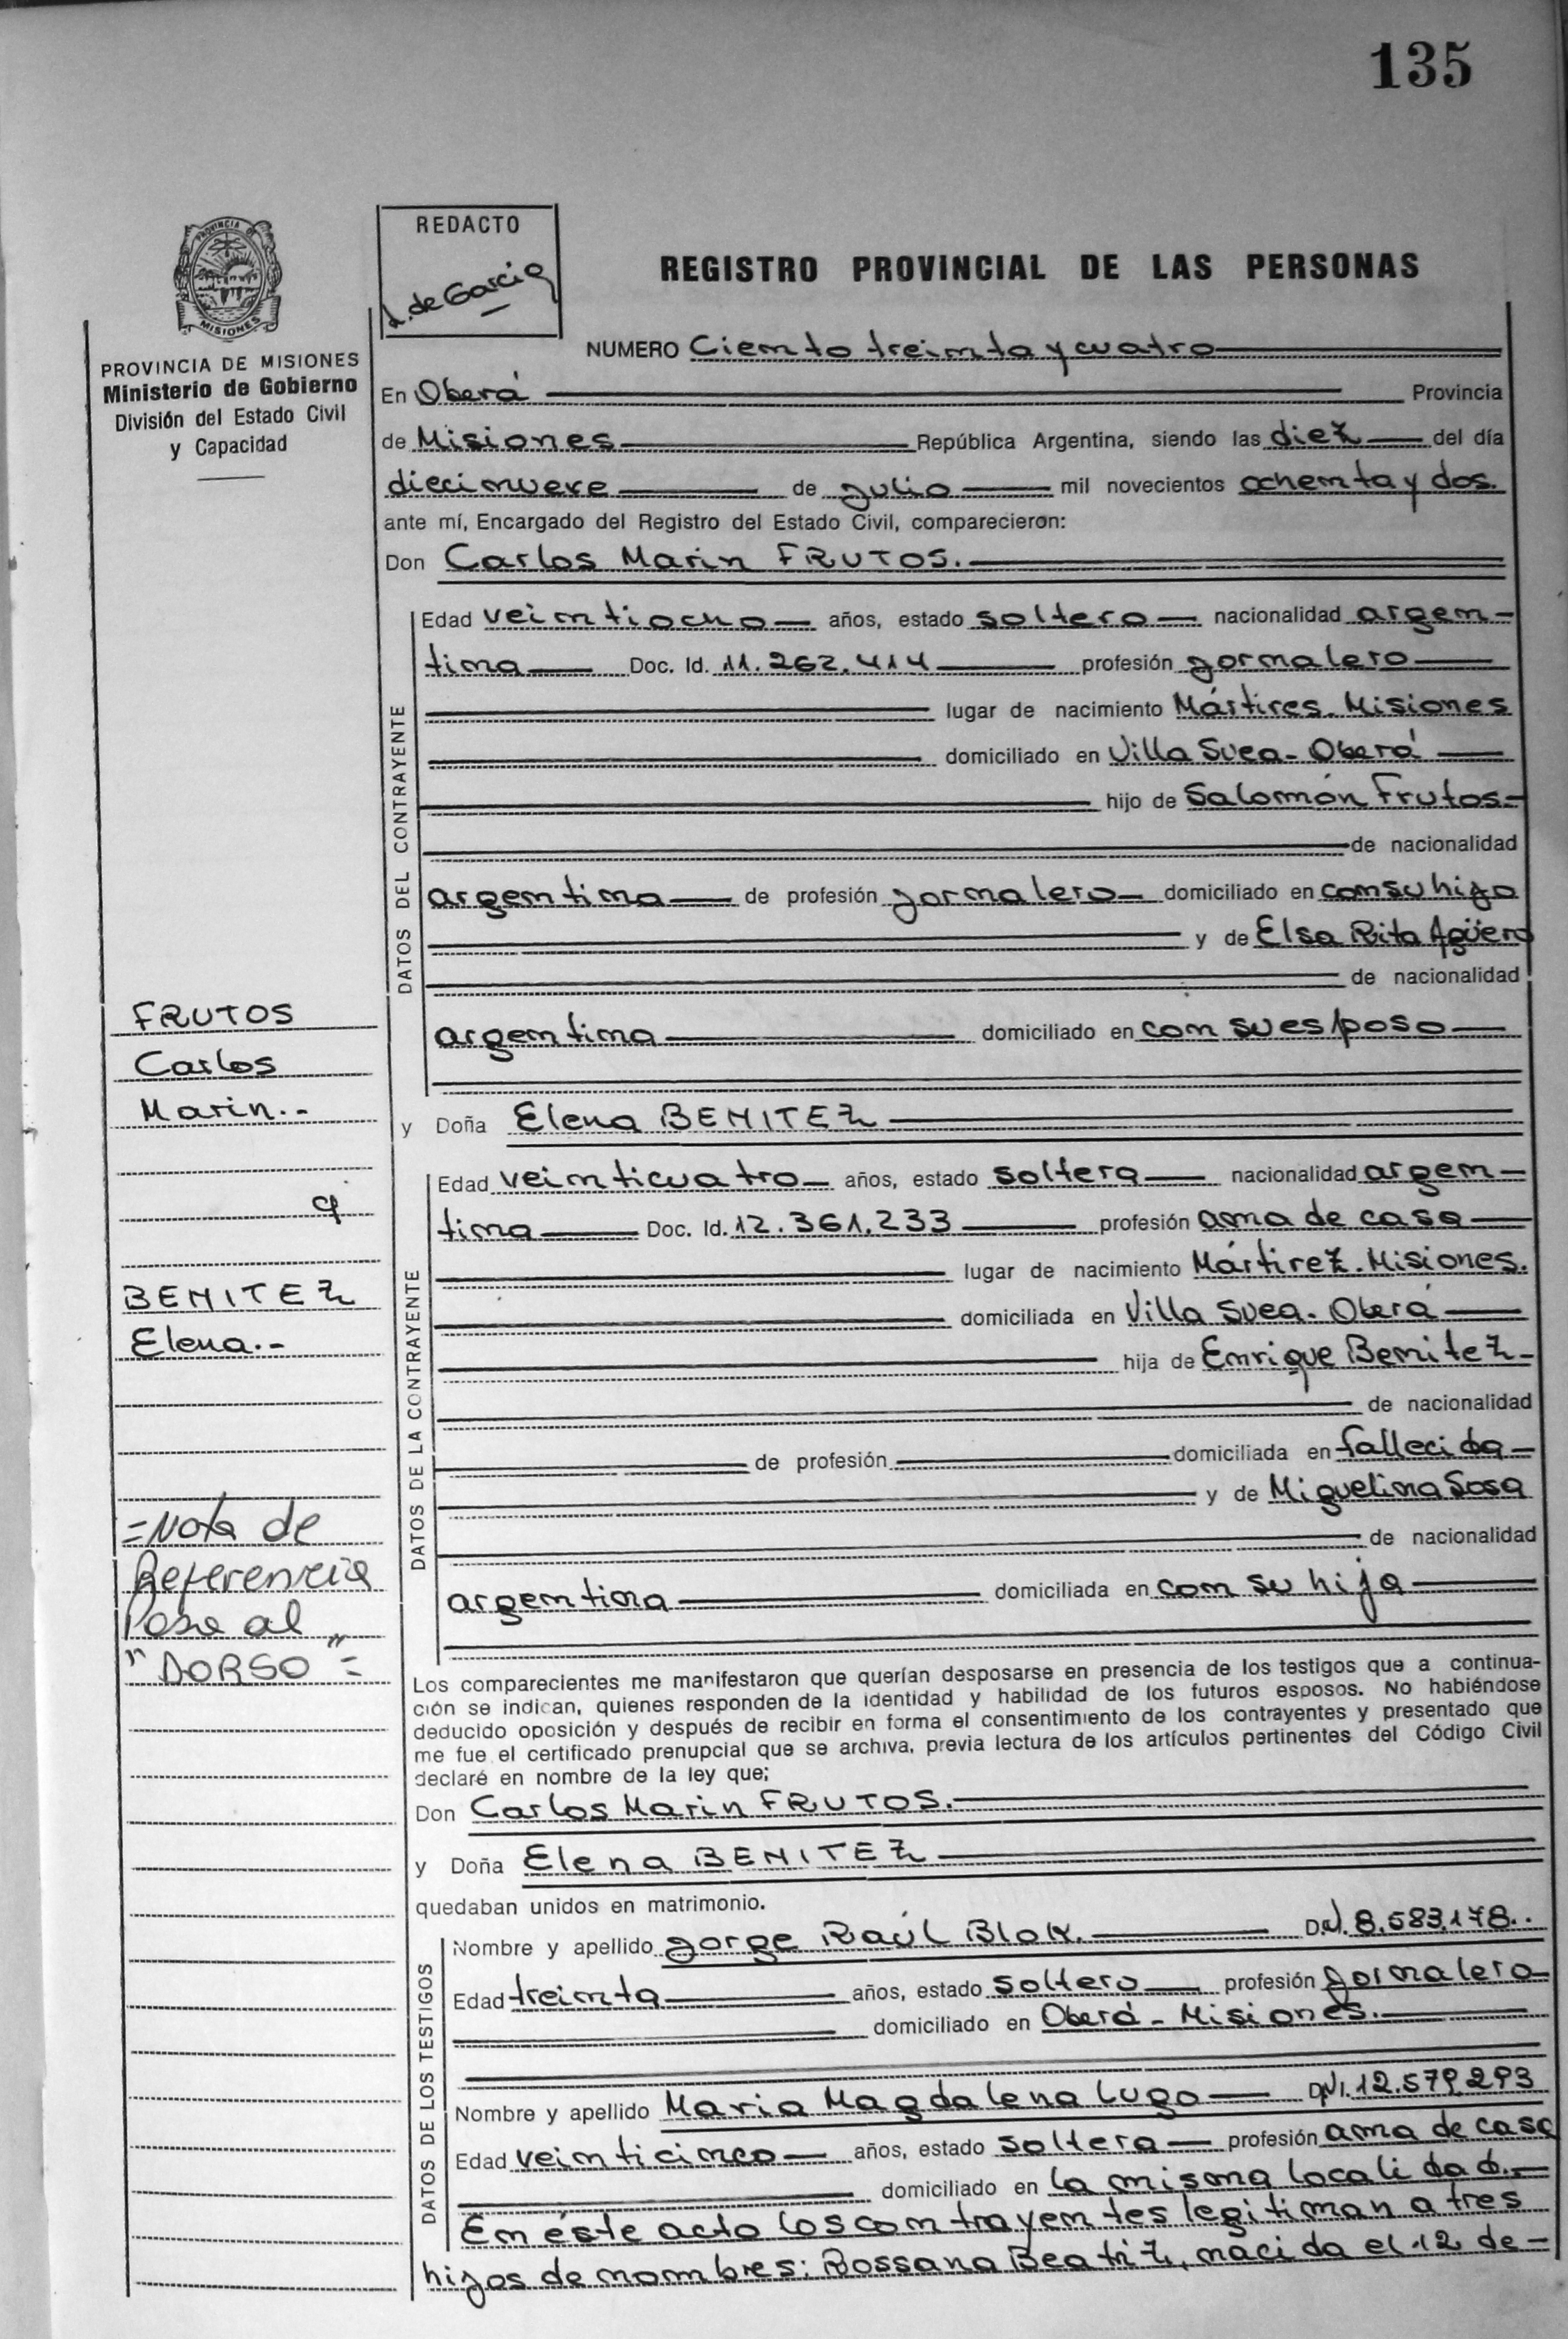 135
REDACTO
L. de Garcia
PROVINCIA DE
MISIONES
PROVINCIA DE MISIONES
Ministerio de Gobierno
División del Estado Civil
y Capacidad
REGISTRO PROVINCIAL DE LAS PERSONAS
NUMERO Ciento treinta y cuatro
En Oberá Provincia
de Misiones República Argentina, siendo las diez del día
diecinueve de julio mil novecientos ochenta y dos.
ante mí, Encargado del Registro del Estado Civil, comparecieron:
Don Carlos Marin FRUTOS.
DATOS DEL CONTRAYENTE
Edad veintiocho años, estado soltero nacionalidad argen-
tina Doc. Id. 11.262.414 profesión jornalero
lugar de nacimiento Mártires. Misiones
domiciliado en Villa Svea - Oberá
hijo de Salomón Frutos-
de nacionalidad
argentina de profesión jornalero domiciliado en con su hijo
y de Elsa Rita Agüero
de nacionalidad
argentina domiciliado en con su esposo
FRUTOS
Carlos
Marin.-
c/
BENITEZ
Elena.-
=Nota de
Referencia
Pase al
"DORSO"=
y Doña Elena BENITEZ
DATOS DE LA CONTRAYENTE
Edad veinticuatro años, estado soltera nacionalidad argen-
tina Doc. Id. 12.361.233 profesión ama de casa
lugar de nacimiento Mártirez. Misiones.
domiciliada en Villa Svea. Oberá
hija de Enrique Benitez-
de nacionalidad
de profesión domiciliada en fallecido
y de Miguelina Sosa
de nacionalidad
argentina domiciliada en con su hija
Los comparecientes me manifestaron que querían desposarse en presencia de los testigos que a continua-
ción se indican, quienes responden de la identidad y habilidad de los futuros esposos. No habiéndose
deducido oposición y después de recibir en forma el consentimiento de los contrayentes y presentado que
me fue el certificado prenupcial que se archiva, previa lectura de los artículos pertinentes del Código Civil
declaré en nombre de la ley que;
Don Carlos Marin FRUTOS.
y Doña Elena BENITEZ
quedaban unidos en matrimonio.
DATOS DE LOS TESTIGOS
Nombre y apellido Jorge Raúl Blok. D.N.I. 8.583.178.
Edad treinta años, estado soltero profesión jornalero
domiciliado en Oberá - Misiones.
Nombre y apellido Maria Magdalena Lugo DNI. 12.579.293
Edad veinticinco años, estado soltera profesión ama de casa
domiciliado en la misma localidad.-
En éste acto los contrayentes legitiman a tres
hijos de nombres: Rossana Beatriz, nacida el 12 de-